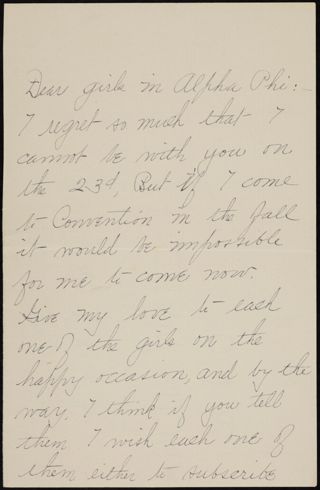 Dear girls in Alpha Phi:-
I regret so much that I
cannot be with you on
the 23d, But if I come
to Convention in the fall
it would be impossible
for me to come now.
Give my love to each
one of the girls on the
happy occasion, and by the
way, I think if you tell
them I wish each one of
them either to subscribe